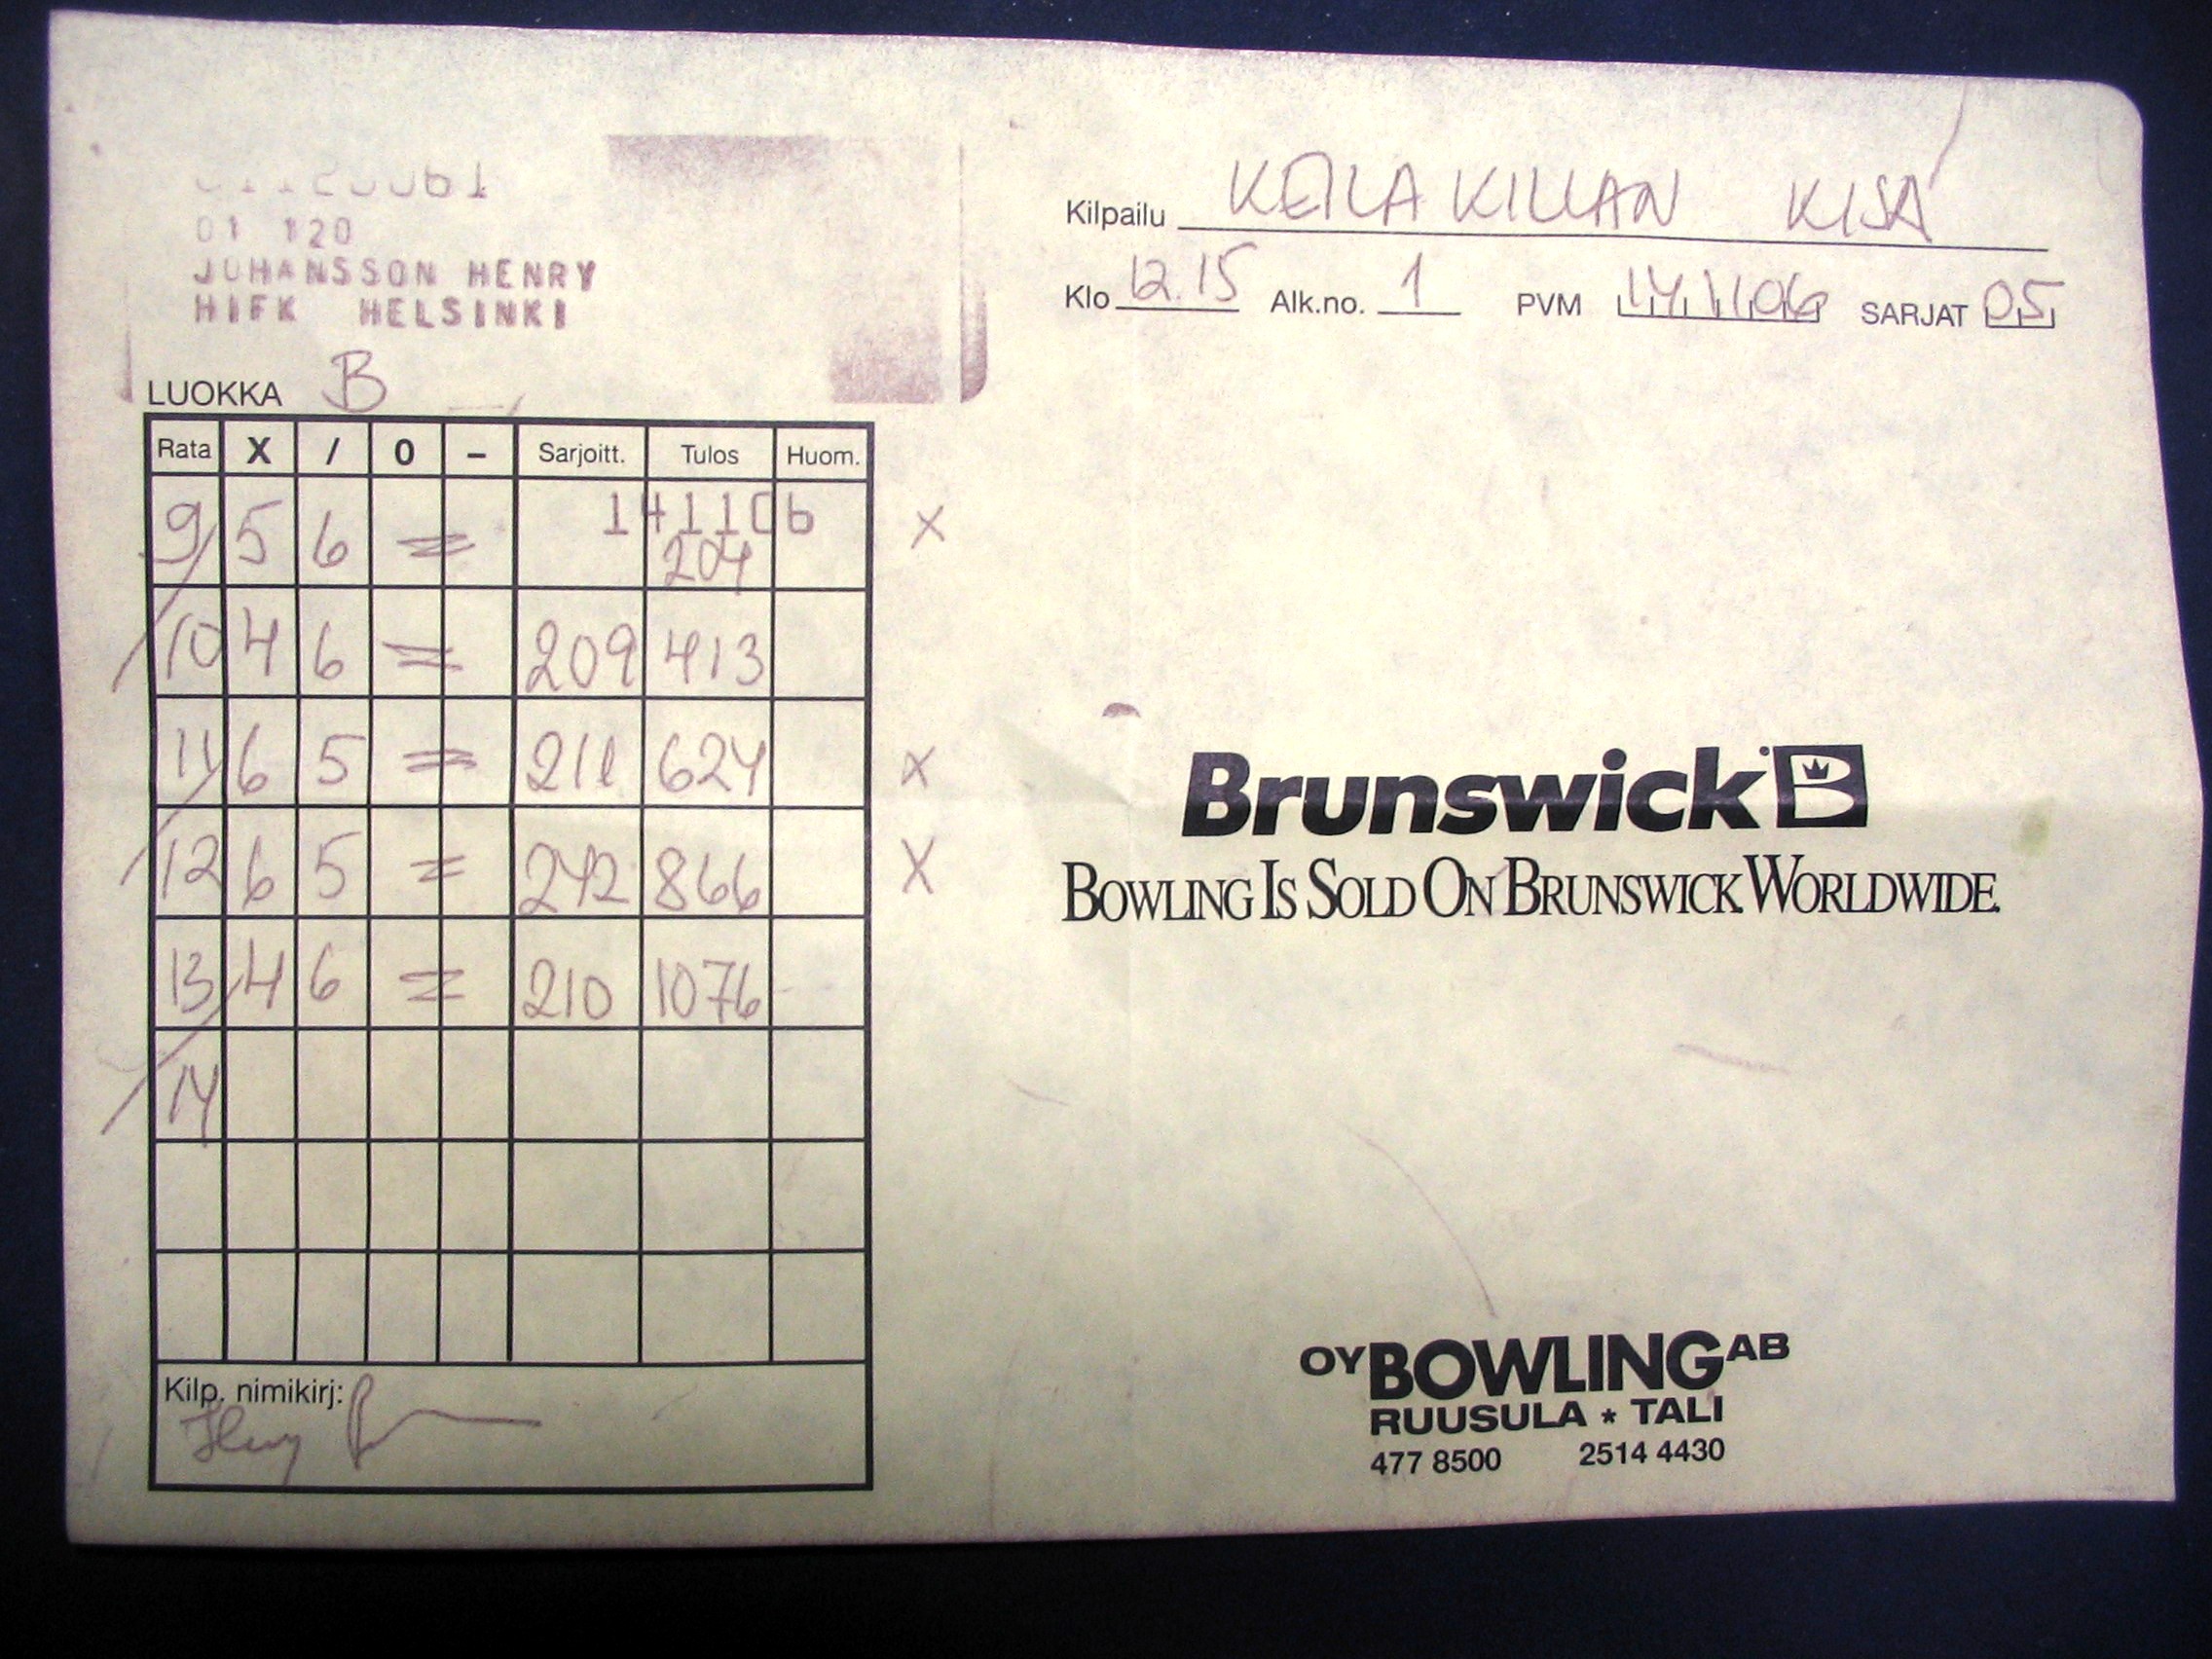 01 120
JOHANSSON HENRY
HIFK HELSINKI
Kilpailu KEILAKILLAN KISA
Klo 12.15 Alk.no. 1 PVM 14.1.06 SARJAT 05
LUOKKA B
Rata X / 0 – Sarjoitt. Tulos Huom.
141106
9 5 6 = 204 X
10 4 6 = 209 413
11 6 5 = 211 624 X
12 6 5 = 242 866 X
13 4 6 = 210 1076
14
Brunswick B
BOWLING IS SOLD ON BRUNSWICK WORLDWIDE.
OY BOWLING AB
RUUSULA * TALI
477 8500 2514 4430
Kilp. nimikirj:
Henry